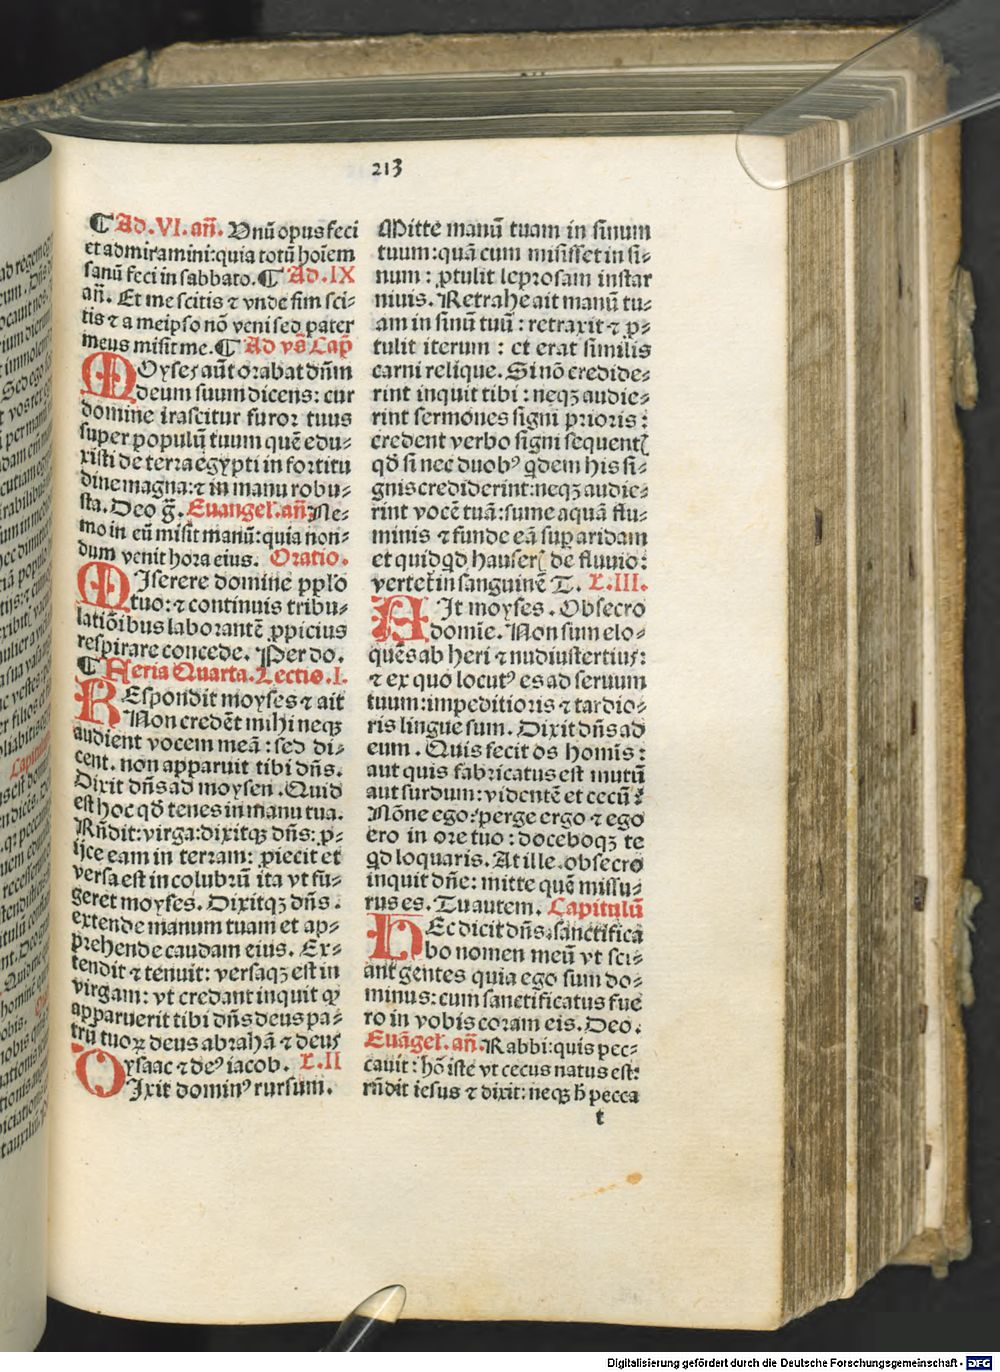 213
¶ Ad.VI.an̄. Vnū opus feci
et admiramini:quia totū hoīem
sanū feci in sabbato. ¶ Ad.IX
an̄. Et me scitis ⁊ vnde sim sci⸗
tis ⁊ a meipso nō veni sed pater
meus misit me. ¶ Ad vs̄ Cap̄
MOyses aūt orabat dn̄m
deum suum dicens: cur
domine irascitur furor tuus
super populū tuum quē edu⸗
xisti de terra egypti in fortitu
dine magna:⁊ in manu robu⸗
sta. Deo gr̄. Euangel̄.an̄. Ne⸗
mo in eū misit manū:quia non⸗
dum venit hora eius. Oratio.
MIserere domine pplo
tuo:⁊ continuis tribu⸗
latiōibus laborantē ꝓpicius
respirare concede. Per do.
¶ Feria Quarta. Lectio.I.
REspondit moyses ⁊ ait
Non credēt mihi neqꝫ
audient vocem meā: sed di⸗
cent. non apparuit tibi dn̄s.
Dixit dn̄s ad moysen. Quid
est hoc qđ tenes in manu tua.
Rn̄dit:virga:dixitqꝫ dn̄s: ꝓ⸗
ijce eam in terram: ꝓiecit et
versa est in colubrū ita vt fu⸗
geret moyses. Dixitqꝫ dn̄s.
extende manum tuam et ap⸗
prehende caudam eius. Ex⸗
tendit ⁊ tenuit: versaqꝫ est in
virgam: vt credant inquit ꝙ
apparuerit tibi dn̄s deus pa⸗
trū tuoꝝ deus abrahā ⁊ deus
ysaac ⁊ deꝰ iacob. L.II
DIxit dominꝰ rursum.
Mitte manū tuam in sinum
tuum:quā cum misisset in si⸗
num: ꝓtulit leprosam instar
niuis. Retrahe ait manū tu⸗
am in sinū tuū: retraxit ⁊ ꝓ⸗
tulit iterum: et erat similis
carni relique. Si nō credide⸗
rint inquit tibi: neqꝫ audie⸗
rint sermones signi prioris:
credent verbo signi sequentꝭ
qđ si nec duobꝰ qdem his si⸗
gnis crediderint:neqꝫ audie⸗
rint vocē tuā:sume aquā flu⸗
minis ⁊ funde eā suꝑ aridam
et quidqd hauserꝭ de fluuio:
vertet̄ in sanguinē T. L.III.
AIt moyses. Obsecro
domīe. Non sum elo⸗
quēs ab heri ⁊ nudiustertius:
⁊ ex quo locutꝰ es ad seruum
tuum:impeditioris ⁊ tardio⸗
ris lingue sum. Dixit dn̄s ad
eum. Quis fecit os homīs:
aut quis fabricatus est mutū
aut surdum:videntē et cecū:
Nōne ego: perge ergo ⁊ ego
ero in ore tuo: doceboqꝫ te
qd loquaris. At ille. obsecro
inquit dn̄e: mitte quē missu⸗
rus es. Tu autem. Capitulū
HEc dicit dn̄s. sanctifica
bo nomen meū vt sci⸗
ant gentes quia ego sum do⸗
minus: cum sanctificatus fue
ro in vobis coram eis. Deo.
Euāgel̄. an̄. Rabbi:quis pec⸗
cauit: hō iste vt cecus natus est:
rn̄dit iesus ⁊ dixit: neqꝫ h̄ pecca
t
Digitalisierung gefördert durch die Deutsche Forschungsgemeinschaft - DFG